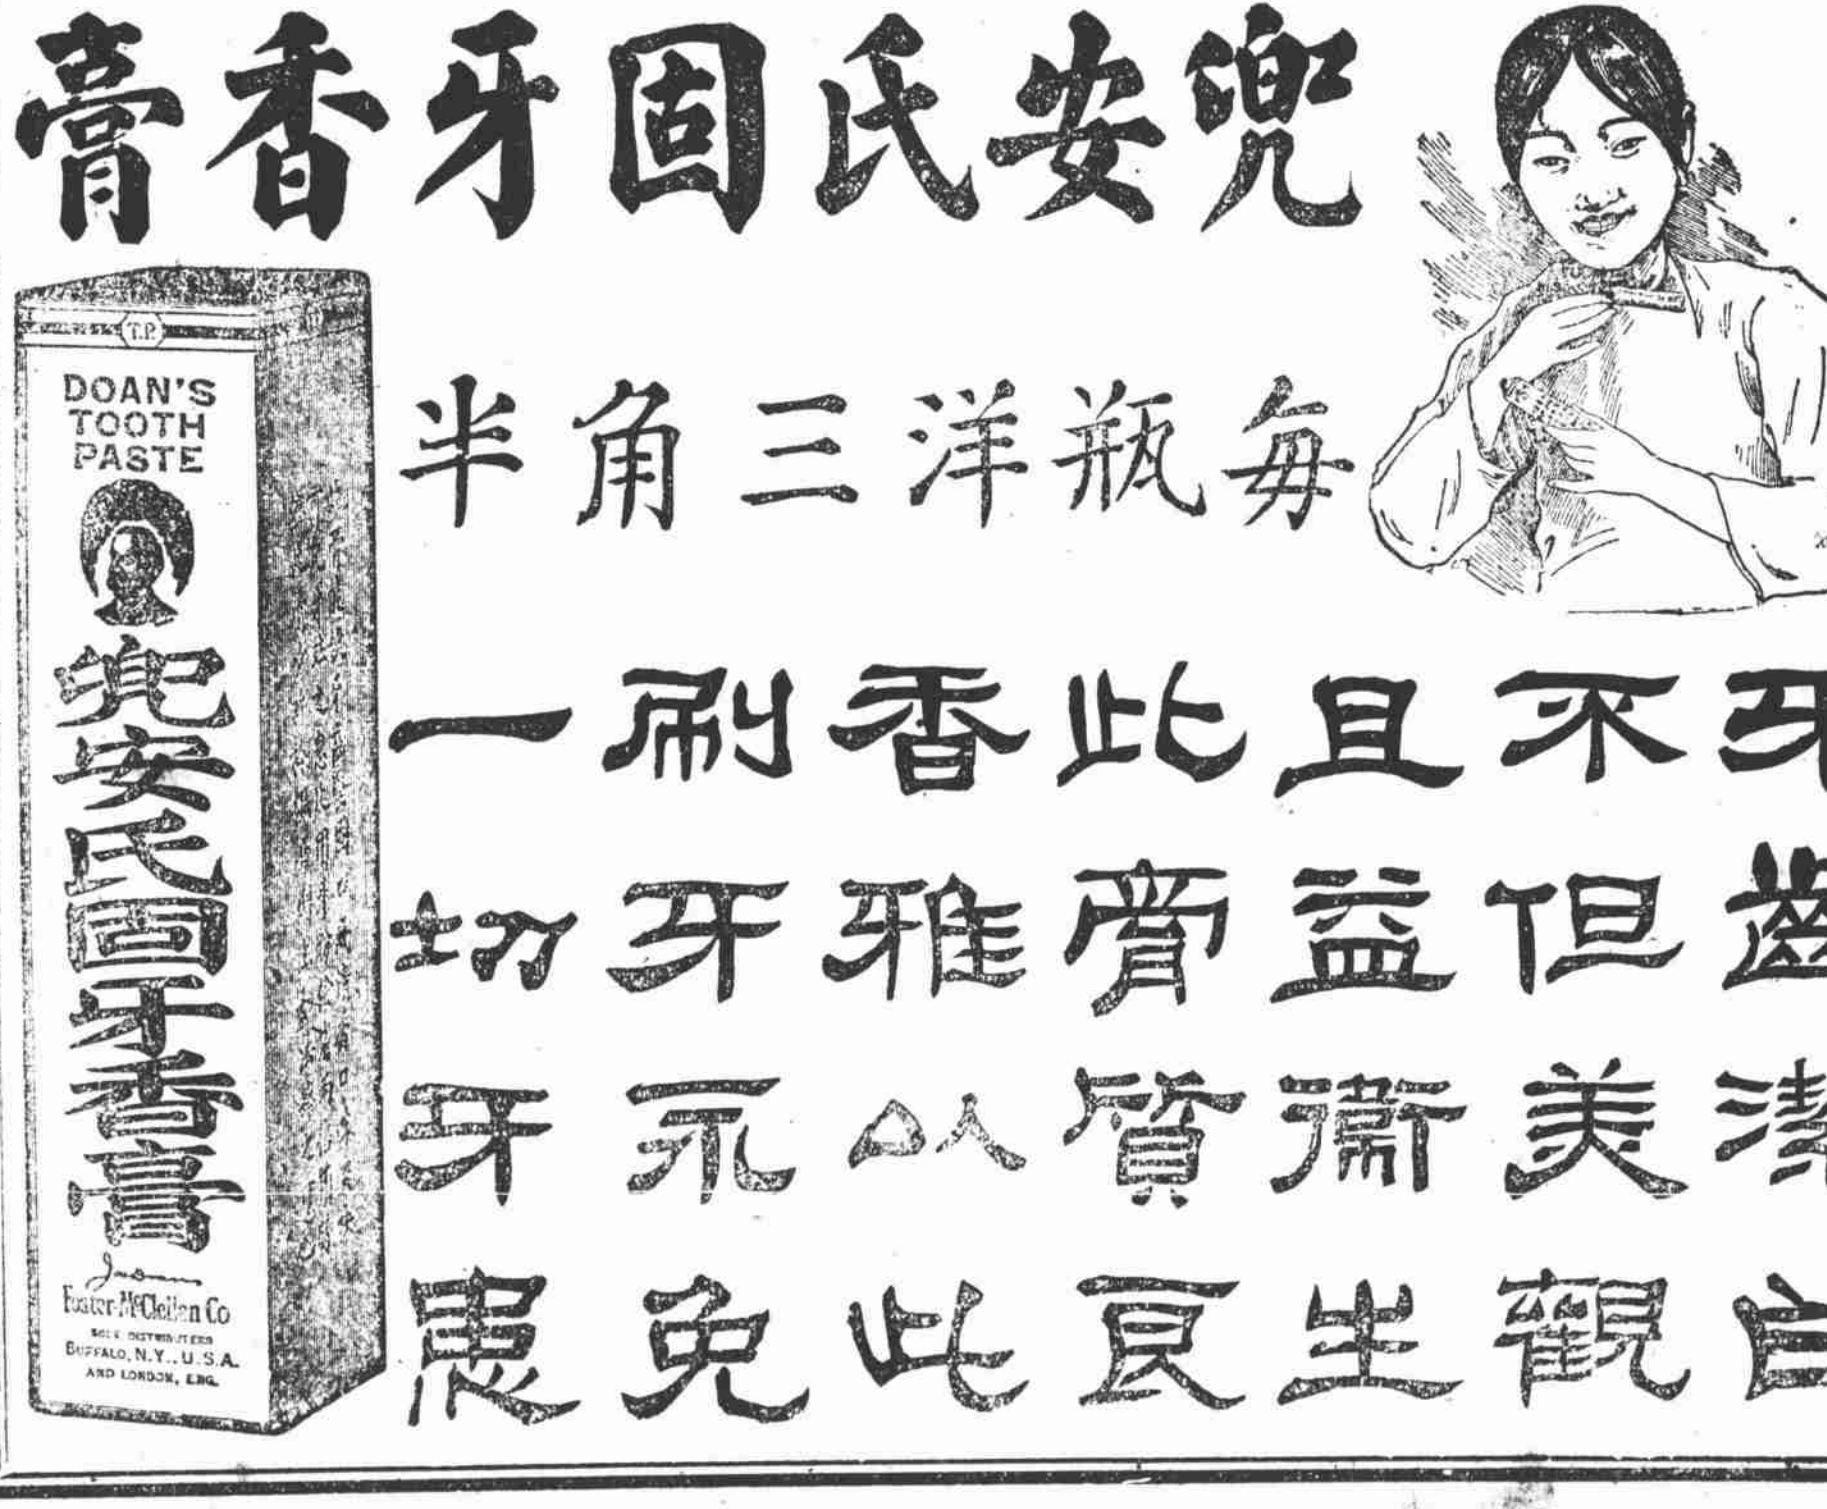 兜安氏固牙香膏
每瓶洋三角半
牙齒潔白
不但美觀
且益衞生
此膏質良
香雅以此
刷牙永免
一切牙患
T.P.
DOAN'S
TOOTH
PASTE
兜安氏固牙香膏
Foster-McClellan Co
SOLE DISTRIBUTERS
BUFFALO, N.Y., U.S.A.
AND LONDON, ENG.